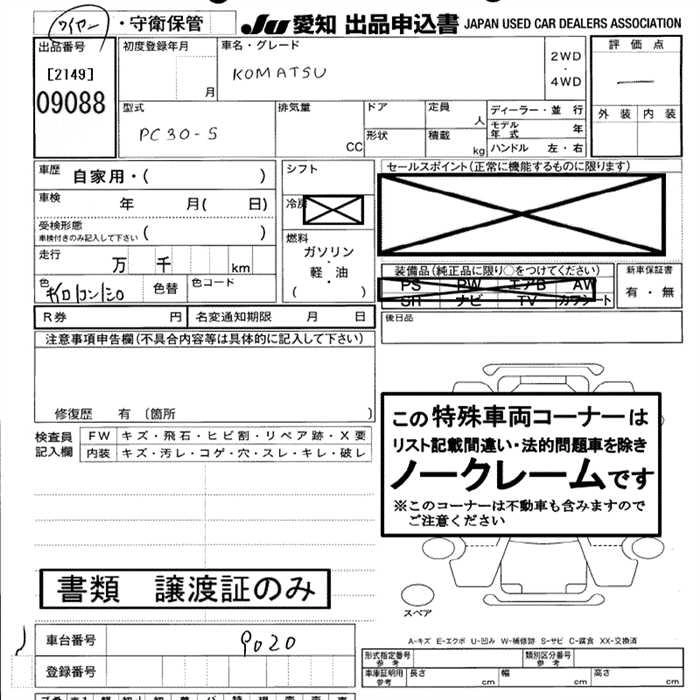 ワイヤー ・守衛保管
JU 愛知 出品申込書 JAPAN USED CAR DEALERS ASSOCIATION
出品番号
[2149]
09088
初度登録年月
月
車名・グレード
KOMATSU
2WD
・
4WD
評価点
—
外装 内装
型式
PC30-5
排気量
CC
ドア
形状
定員
人
積載
kg
ディーラー・並 行
モデル年式 年
ハンドル 左・右
車歴 自家用・( )
車検 年 月( 日)
受検形態
車検付きのみ記入して下さい ( )
走行 万 千 km
色 色替 色コード
シフト
冷房
燃料
ガソリン
・
軽・油
( )
セールスポイント(正常に機能するものに限ります)
装備品(純正品に限り○をつけてください)
PS PW エアB AW
SR ナビ TV カワシート
新車保証書
有・無
R券 円 名変通知期限 月 日
後日品
注意事項申告欄(不具合内容等は具体的に記入して下さい)
修復歴 有 〔箇所 〕
検査員
記入欄
FW キズ・飛石・ヒビ割・リペア跡・X要
内装 キズ・汚レ・コゲ・穴・スレ・キレ・破レ
この特殊車両コーナーは
リスト記載間違い・法的問題車を除き
ノークレームです
※このコーナーは不動車も含みますので
ご注意ください
書類 譲渡証のみ
スペア
A-キズ E-エクボ U-凹み W-補修跡 S-サビ C-腐食 XX-交換済
車台番号 9020
登録番号
形式指定番号
参考
類別区分番号
参考
車庫証明用
参考
長さ cm 幅 cm 高さ cm